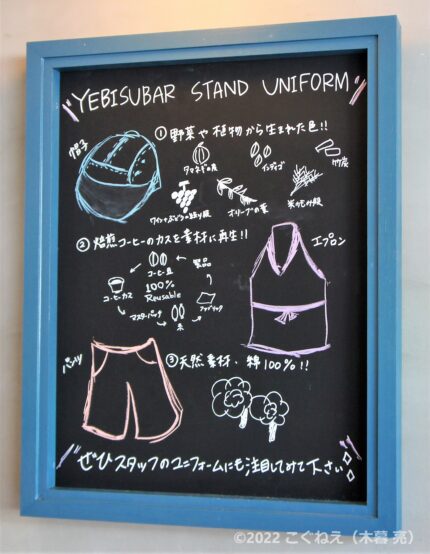 YEBISUBAR STAND UNIFORM
① 野菜や植物から生まれた色!!
帽子
タマネギの皮
インディゴ
竹炭
ワイン・ぶどうの絞り殻
オリーブの葉
米のもみ殻
② 焙煎コーヒーのカスを素材に再生!!
エプロン
コーヒー豆
製品
コーヒーカス
100%
Reusable
マスターバッチ
糸
ファブリック
パンツ
③ 天然素材・綿100%!!
ぜひスタッフのユニフォームにも注目してみて下さい
©2022 こぐねえ（木暮 亮）